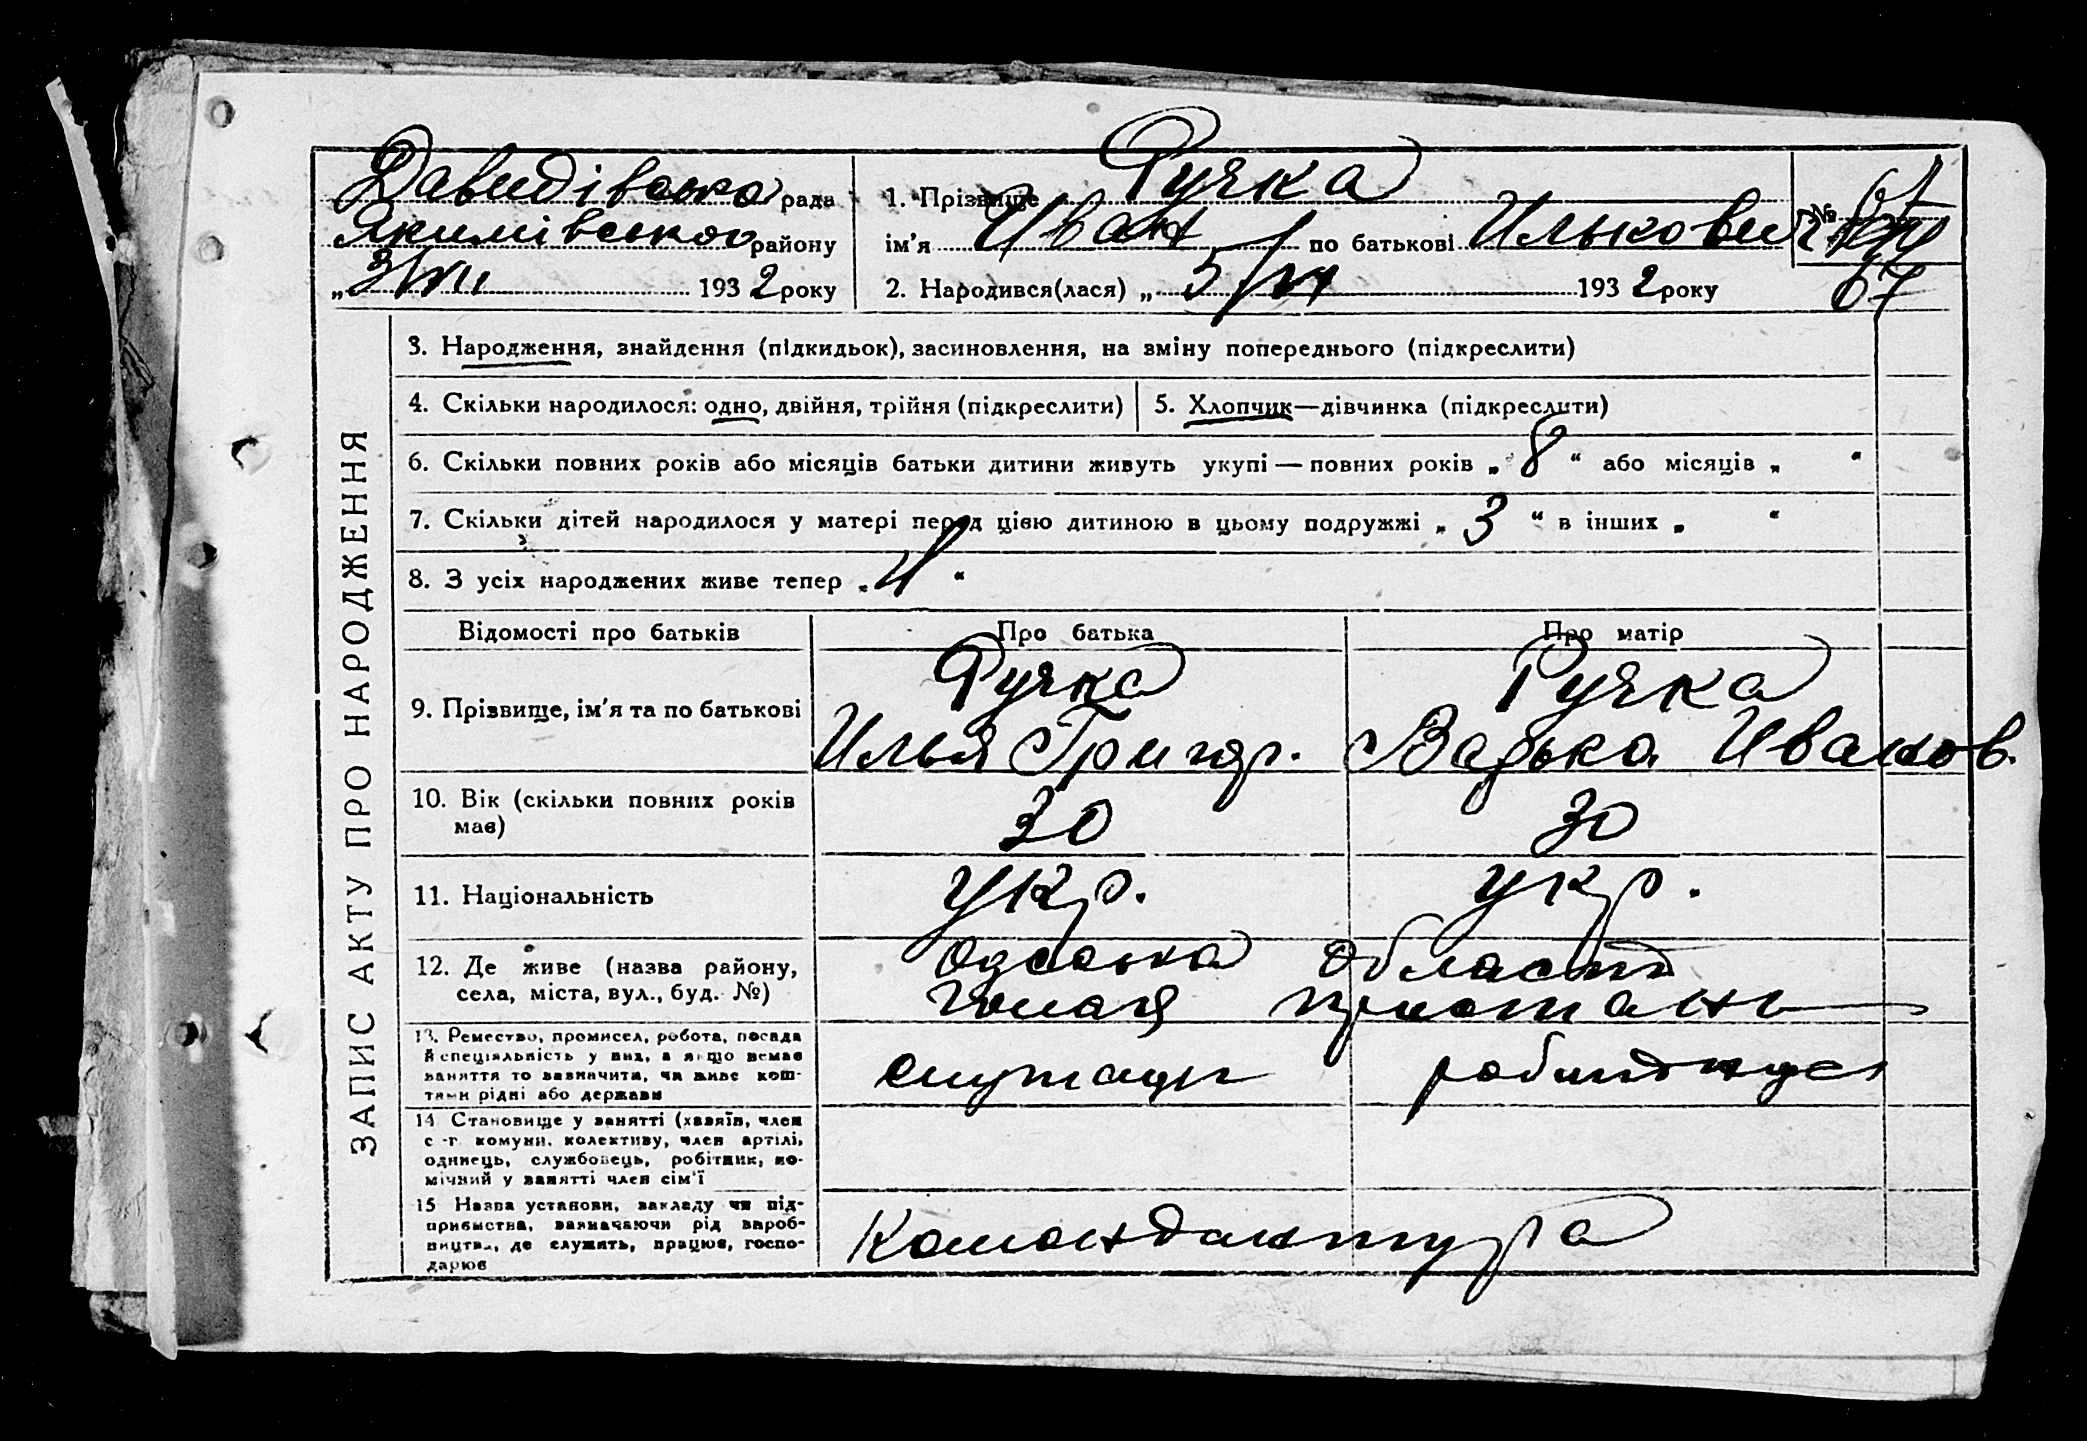 Давидівська рада
Якимівського району
„ 3/VII 1932 року
1. Прізвище Ручка
ім’я Иван по батькові Илькович
2. Народився(лася) „ 5/VI 1932 року
№
67
ЗАПИС АКТУ ПРО НАРОДЖЕННЯ
3. Народження, знайдення (підкидьок), засиновлення, на зміну попереднього (підкреслити)
4. Скільки народилося: одно, двійня, трійня (підкреслити)
5. Хлопчик—дівчинка (підкреслити)
6. Скільки повних років або місяців батьки дитини живуть укупі — повних років „ 8 “ або місяців „ “
7. Скільки дітей народилося у матері перед цією дитиною в цьому подружжі „ 3 “ в інших „ “
8. З усіх народжених живе тепер „ 4 “
Відомості про батьків Про батька Про матір
9. Прізвище, ім’я та по батькові
Ручка
Илья Григор.
Ручка
Варька Иванов.
10. Вік (скільки повних років
має)
30 30
11. Національність укр. укр.
12. Де живе (назва району,
села, міста, вул., буд. №)
Одеська область
Голая пристань
13. Ремество, промисел, робота, посада
й спеціяльність у них, а якщо немає
заняття то зазначити, чи живе кош-
тами рідні або держави
14 Становище у занятті (хазяїн, член
с.-г. комуни, колективу, член артілі,
одинець, службовець, робітник, по-
мічний у занятті член сім’ї
15 Назва установи, закладу чи під-
приємства, зазначаючи рід вироб-
ництва, де служить, працює, госпо-
дарює
Комондантура